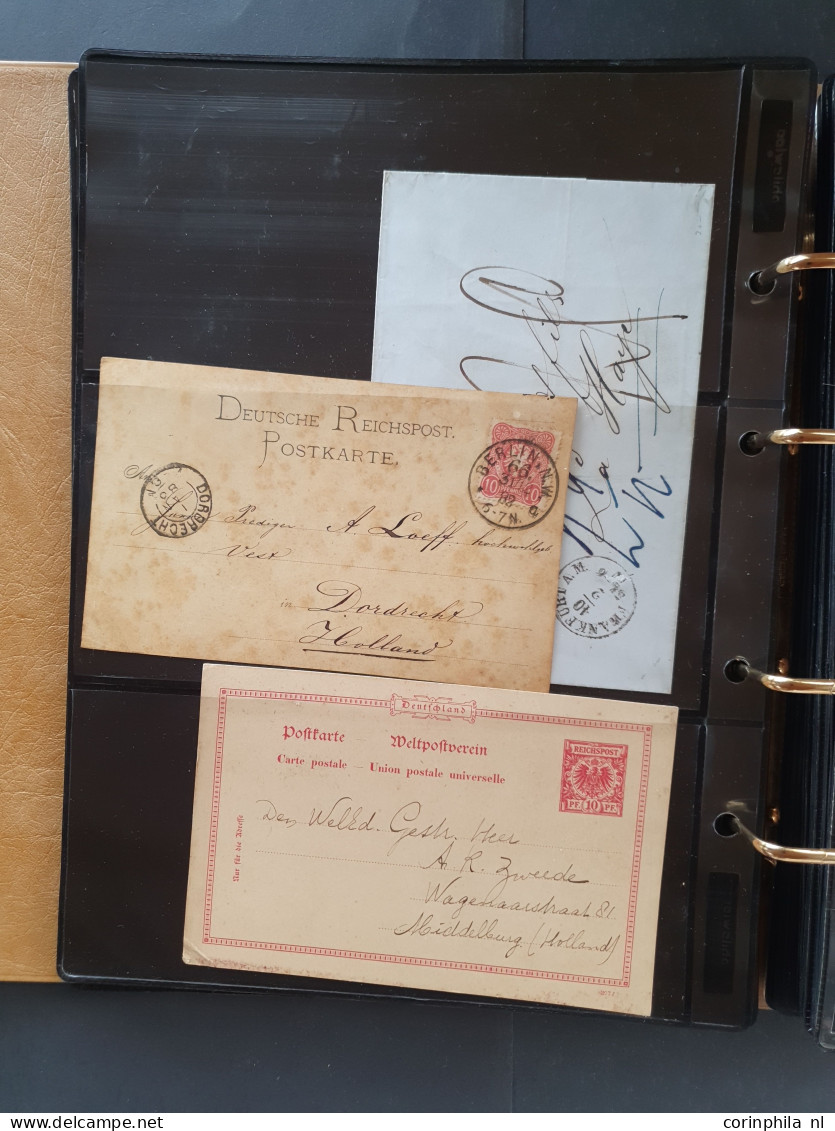 La Haye
FRANKFURT A. M.
10
DEUTSCHE REICHSPOST.
POSTKARTE.
BERLIN. N.W.
5-7N.
10 10
DORDRECHT
Prediger A. Loeff
Vest
in Dordrecht
Holland
Deutschland
Postkarte Weltpostverein
Carte postale – Union postale universelle
REICHSPOST
PF. 10 PF.
Nur für die Adresse
Den WelEd. Gestr. Heer
A. R. Zweede
Wagenaarstraat 81.
Middelburg (Holland)
www.delcampe.net
corinphila nl